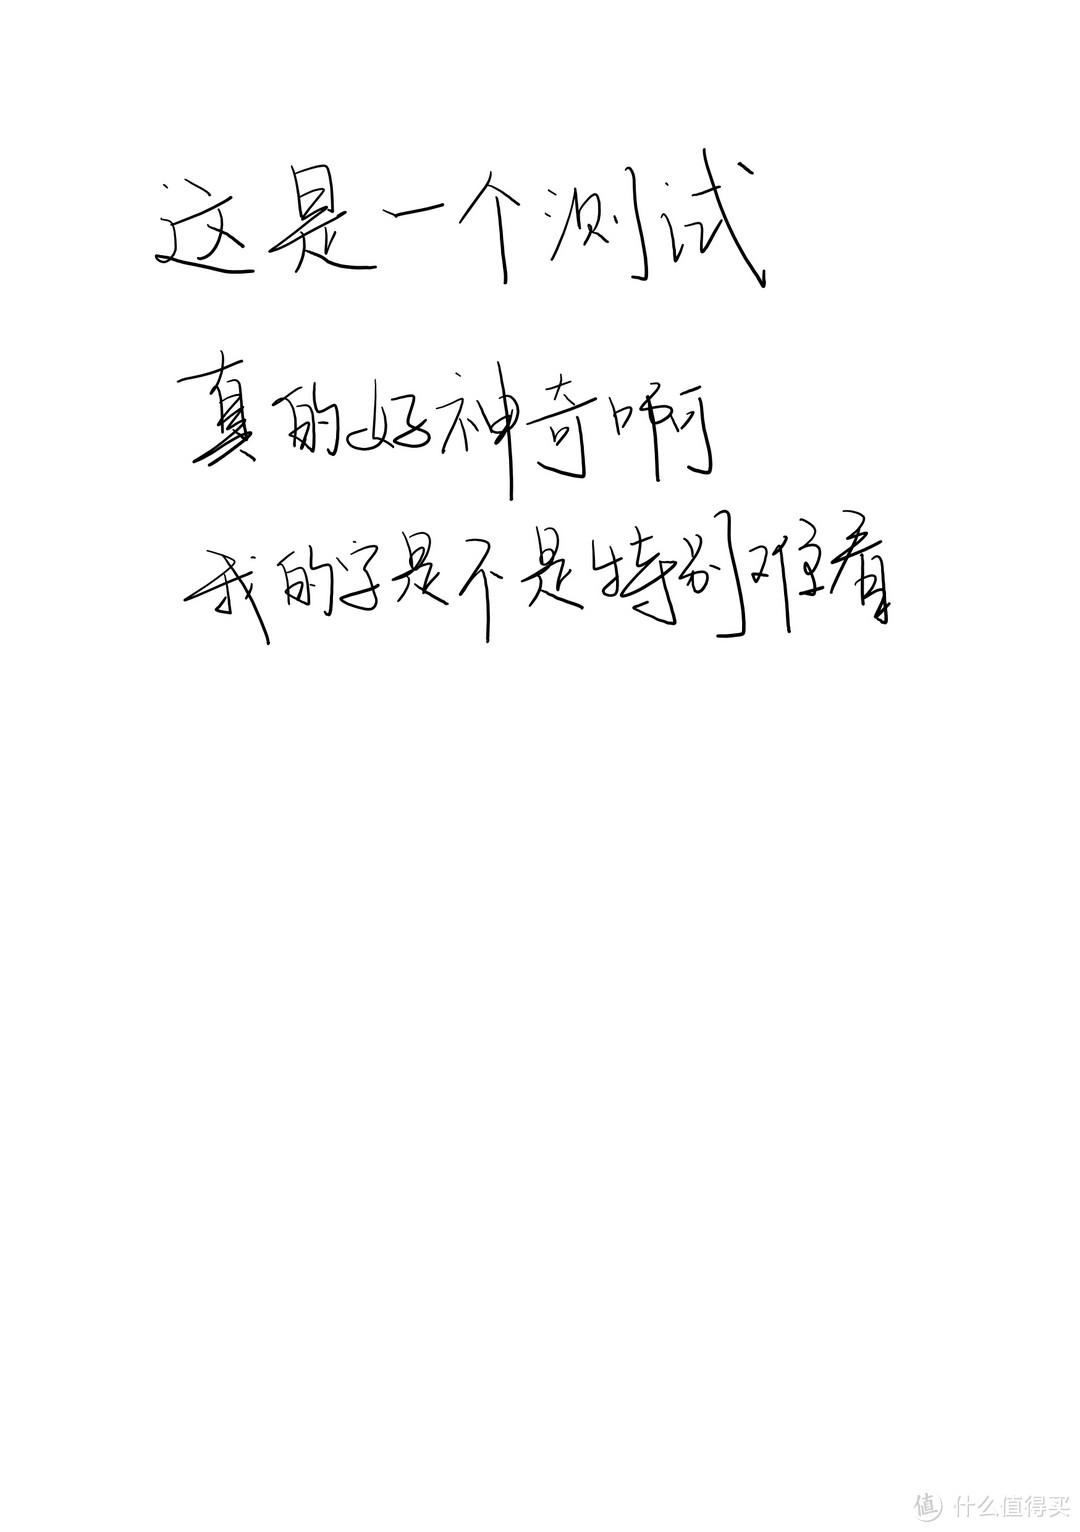 这是一个测试
真的好神奇啊
我的字是不是特别难看
值 什么值得买